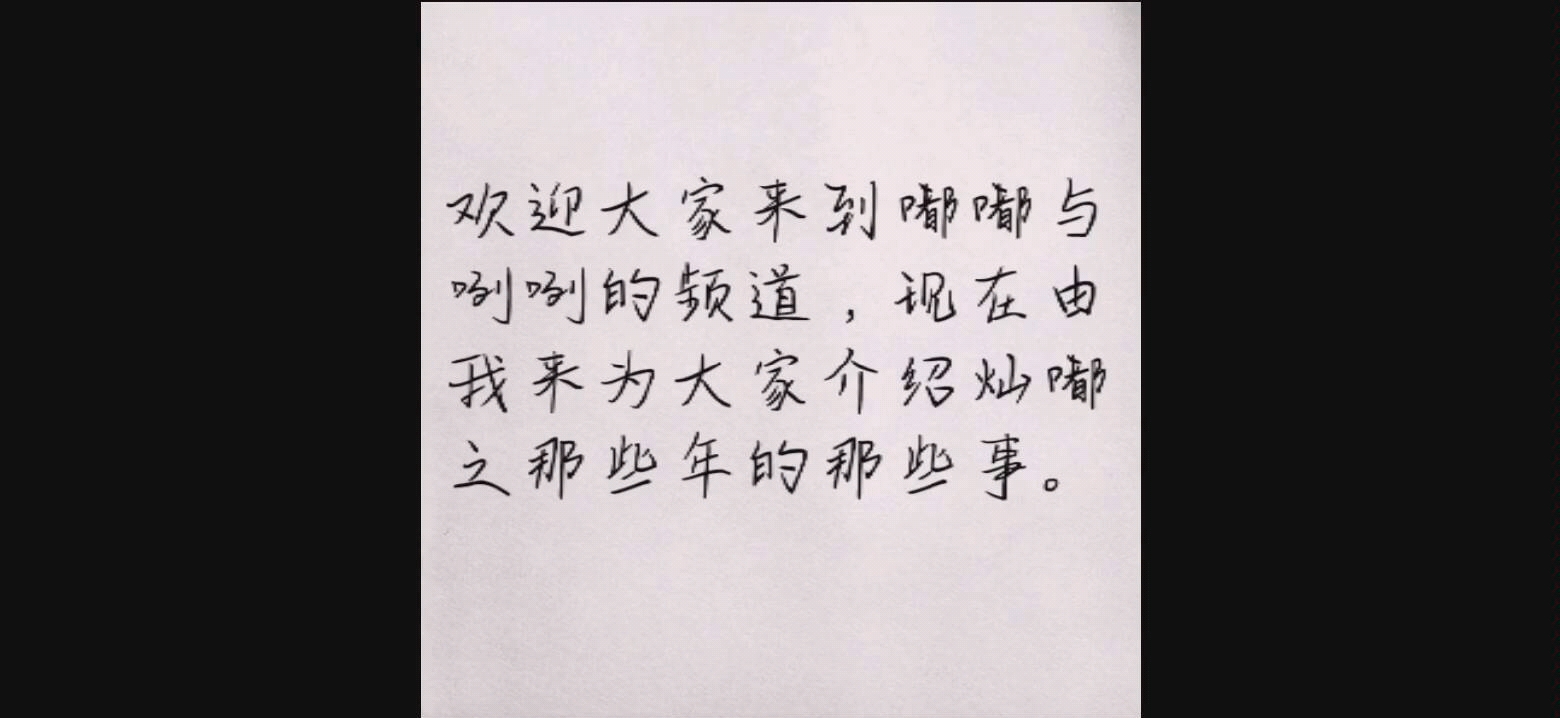 欢迎大家来到嘟嘟与
咧咧的频道，现在由
我来为大家介绍灿嘟
之那些年的那些事。